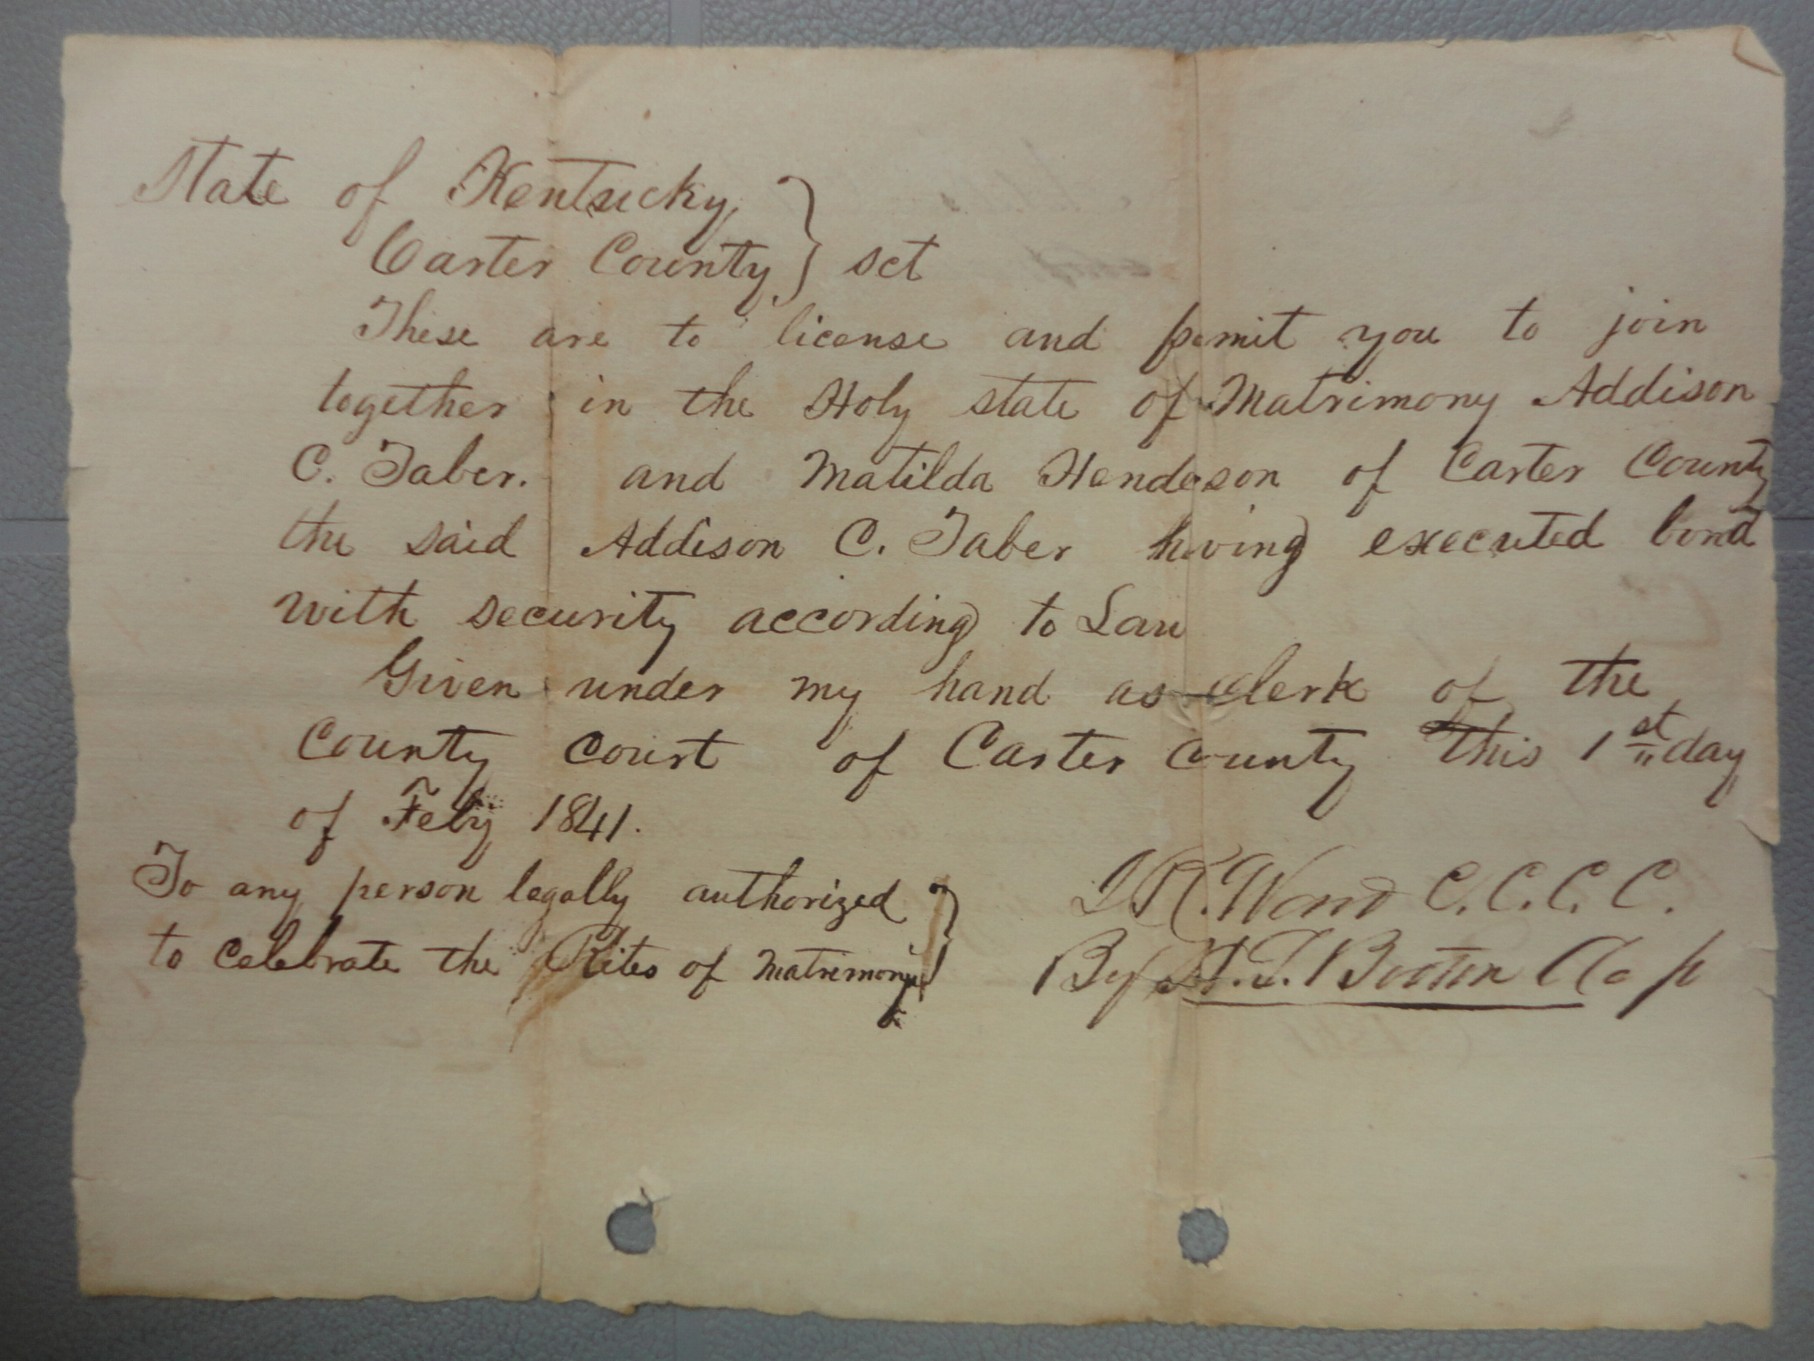 State of Kentucky,
Carter County } sct
These are to license and permit you to join
together in the Holy state of Matrimony Addison
C. Taber. and Matilda Henderson of Carter County
the said Addison C. Taber having executed bond
with security according to Law
Given under my hand as clerk of the
County court of Carter county this 1st day
of Feby 1841.
To any person legally authorized
to celebrate the Rites of Matrimony
Ward C.C.C.C.
By